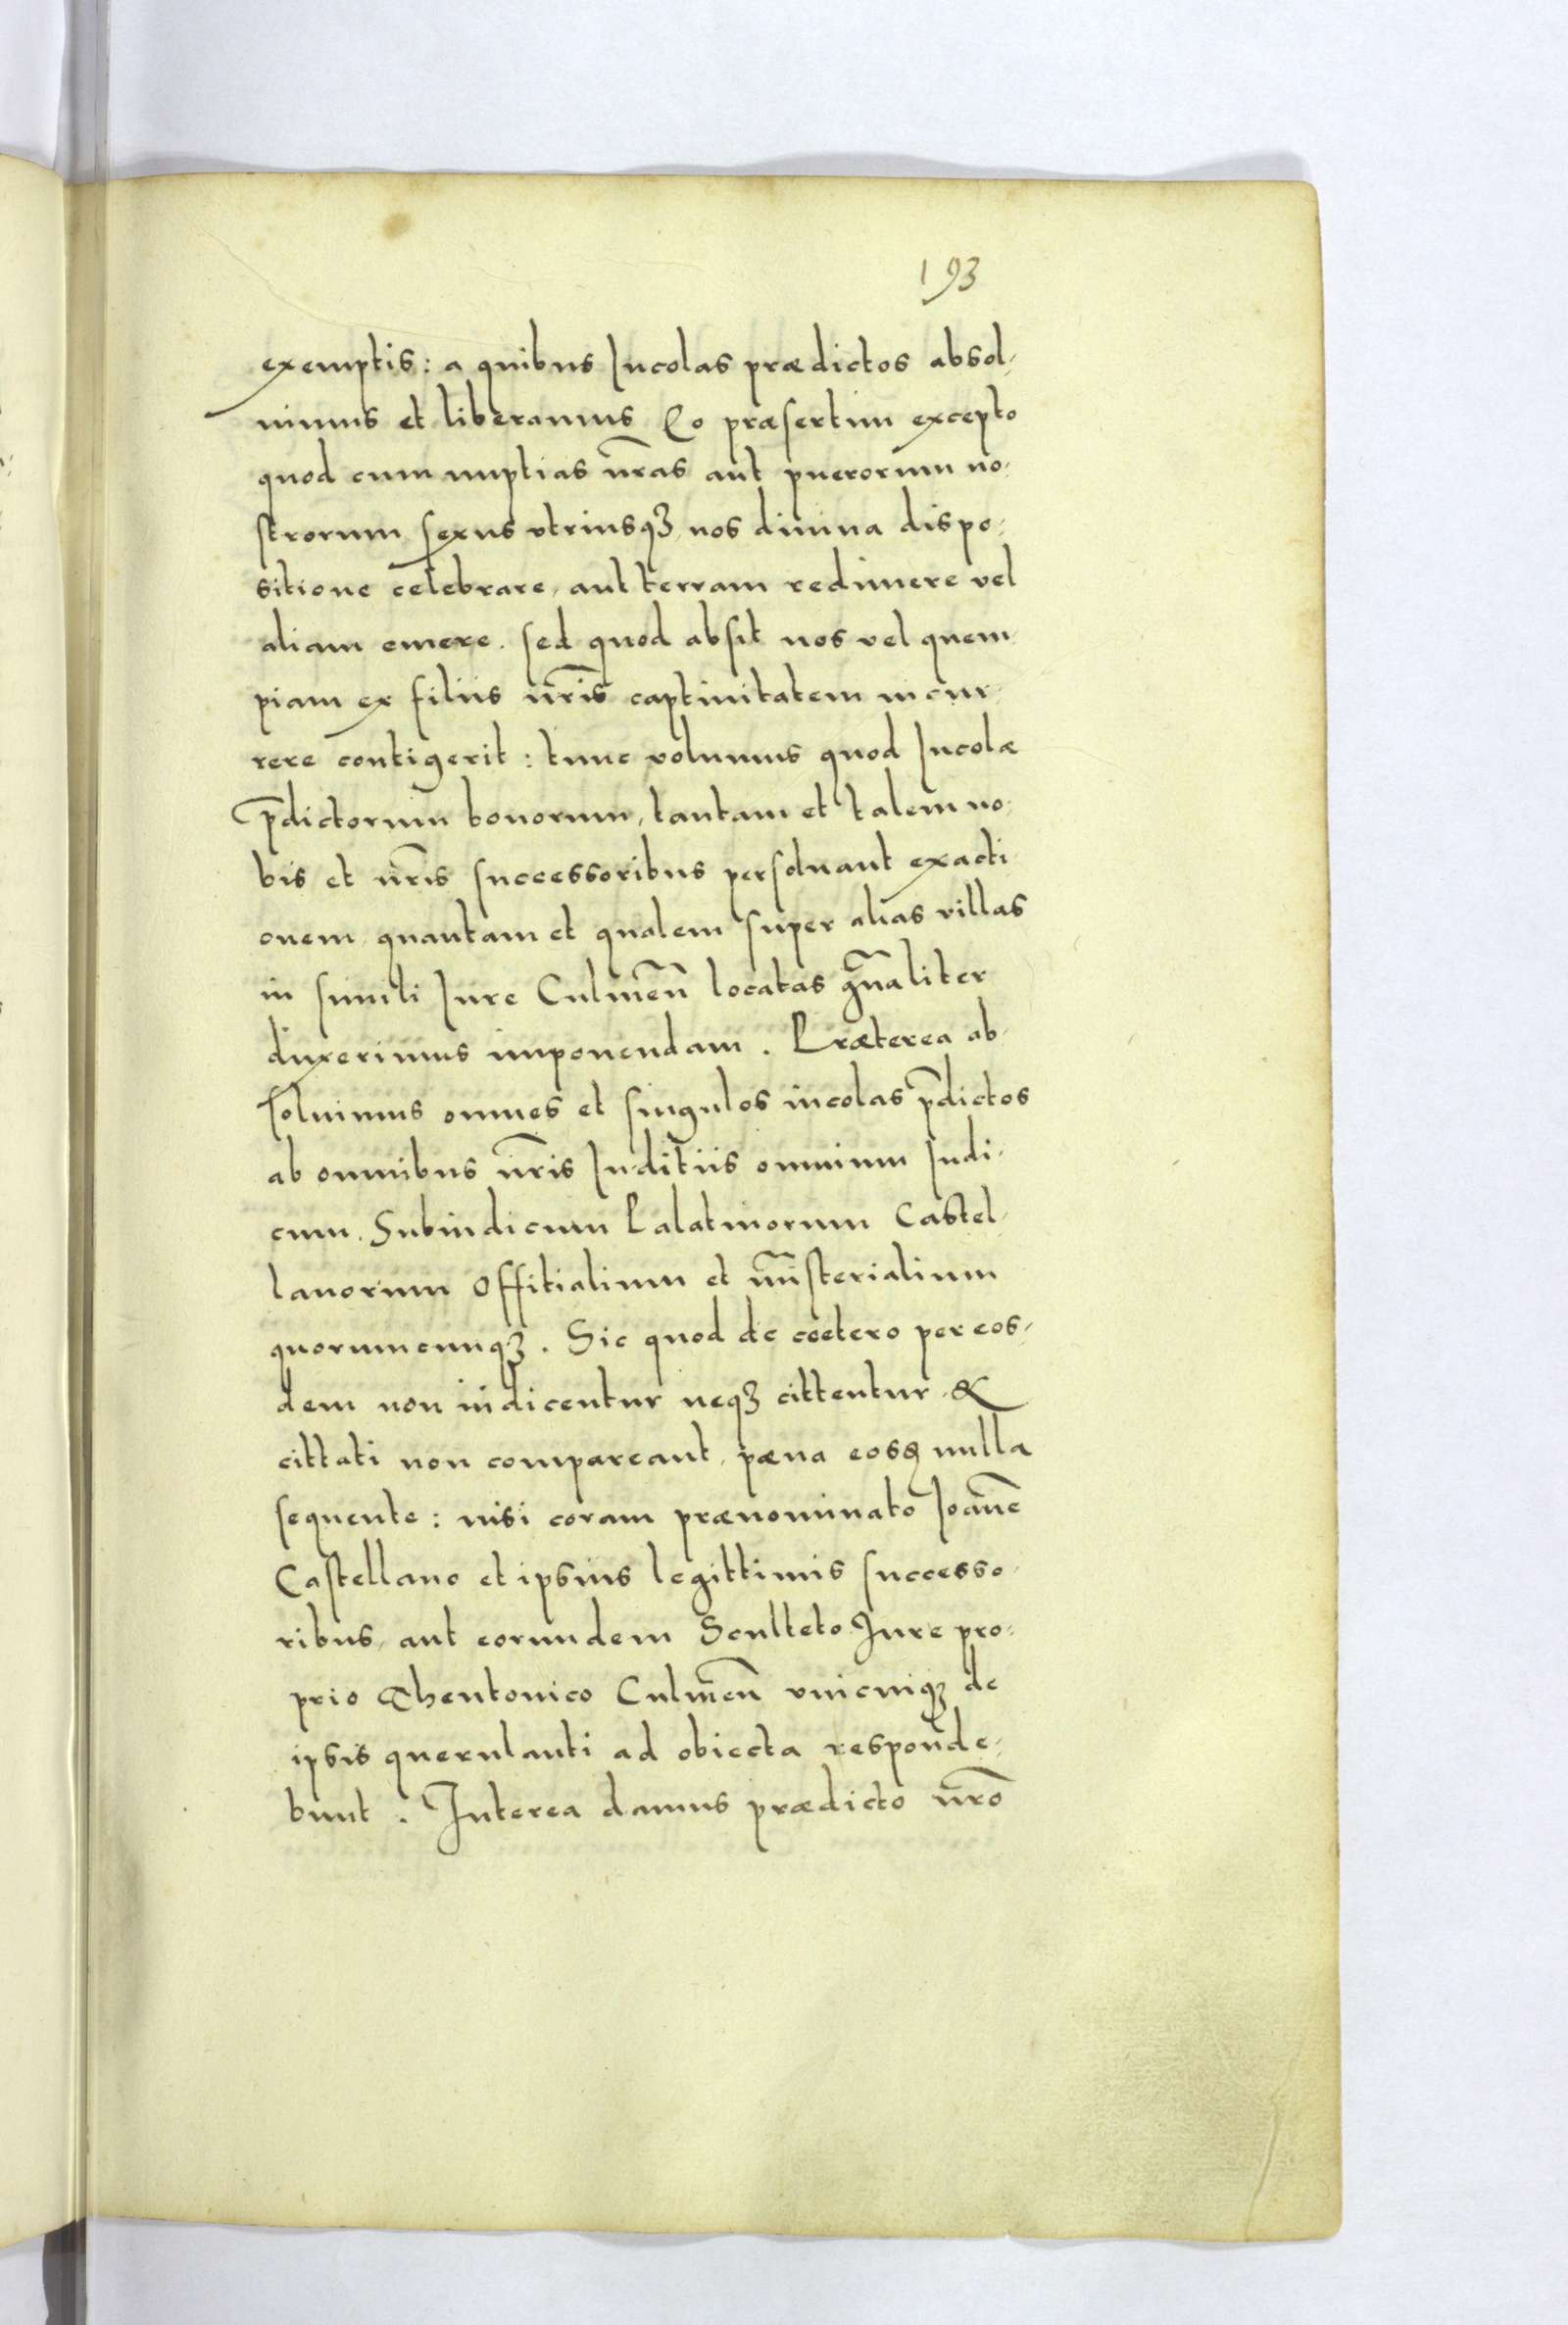 193
exemptis: a quibus Incolas prædictos absol-
uimus et liberamus Eo præsertim excepto
quod cum nuptias nr̃as aut puerorum no-
strorum sexus vtriusqꝫ nos diuina dispo-
sitione celebrare, aut terram redimere vel
aliam emere. sed quod absit nos vel quem-
piam ex filiis nr̃is captiuitatem incur-
rere contigerit: tunc volumus quod Incolæ
p̃dictorum bonorum, tantam et talem no-
bis et nr̃is successoribus persoluant exacti
onem, quantam et qualem super alias villas
in simili Iure Culmeñ locatas gñaliter
duxerimus imponendam. Præterea ab-
soluimus omnes et singulos incolas p̃dictos
ab omnibus nr̃is Iuditiis omnium Iudi-
cum. Subiudicum Palatinorum Castel-
lanorum Offitialium et mñisterialium
quorumcunqꝫ. Sic quod de cœtero per eos-
dem non iudicentur neqꝫ cittentur &
cittati non compareant, pæna eosq nulla
sequente: nisi coram prænominato Ioañe
Castellano et ipsius legittimis successo-
ribus, aut eorundem Sculteto Iure pro-
prio Theutonico Culmeñ vnicuiqꝫ de
ipsis querulanti ad obiecta responde-
bunt. Interea damus prædicto nr̃o